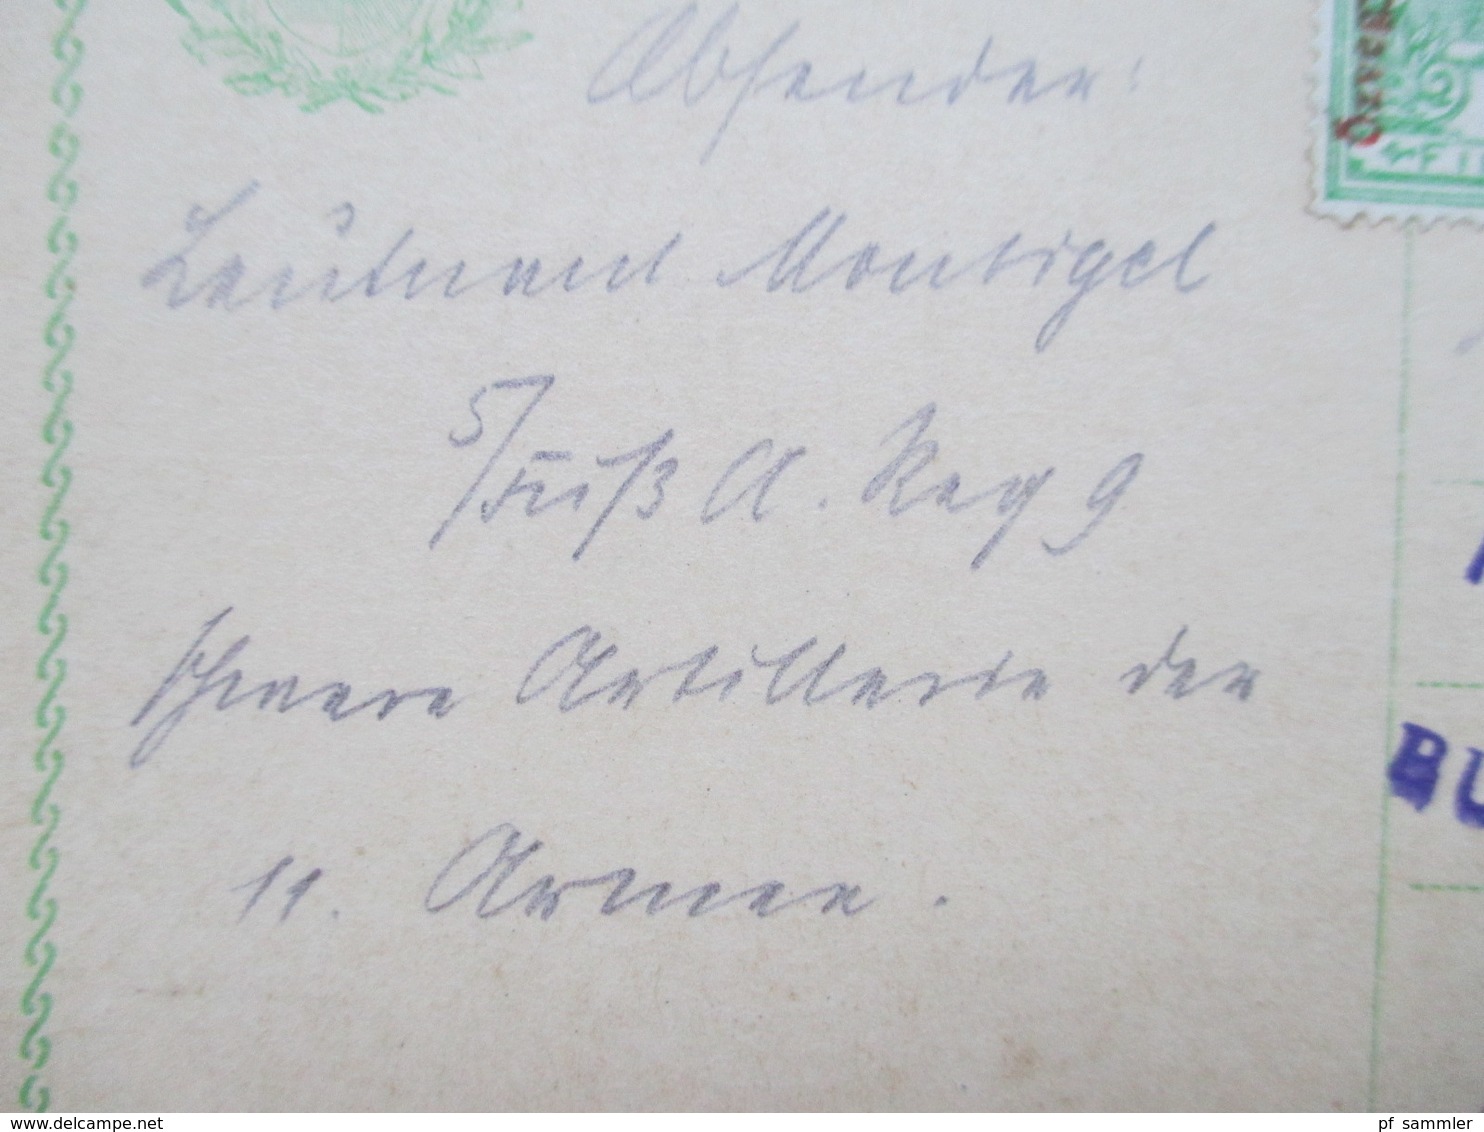 Absender:
Leutnant Montigel
5/Fuß A. Reg 9
schwere Artillerie der
11. Armee.
BU
pf sammler